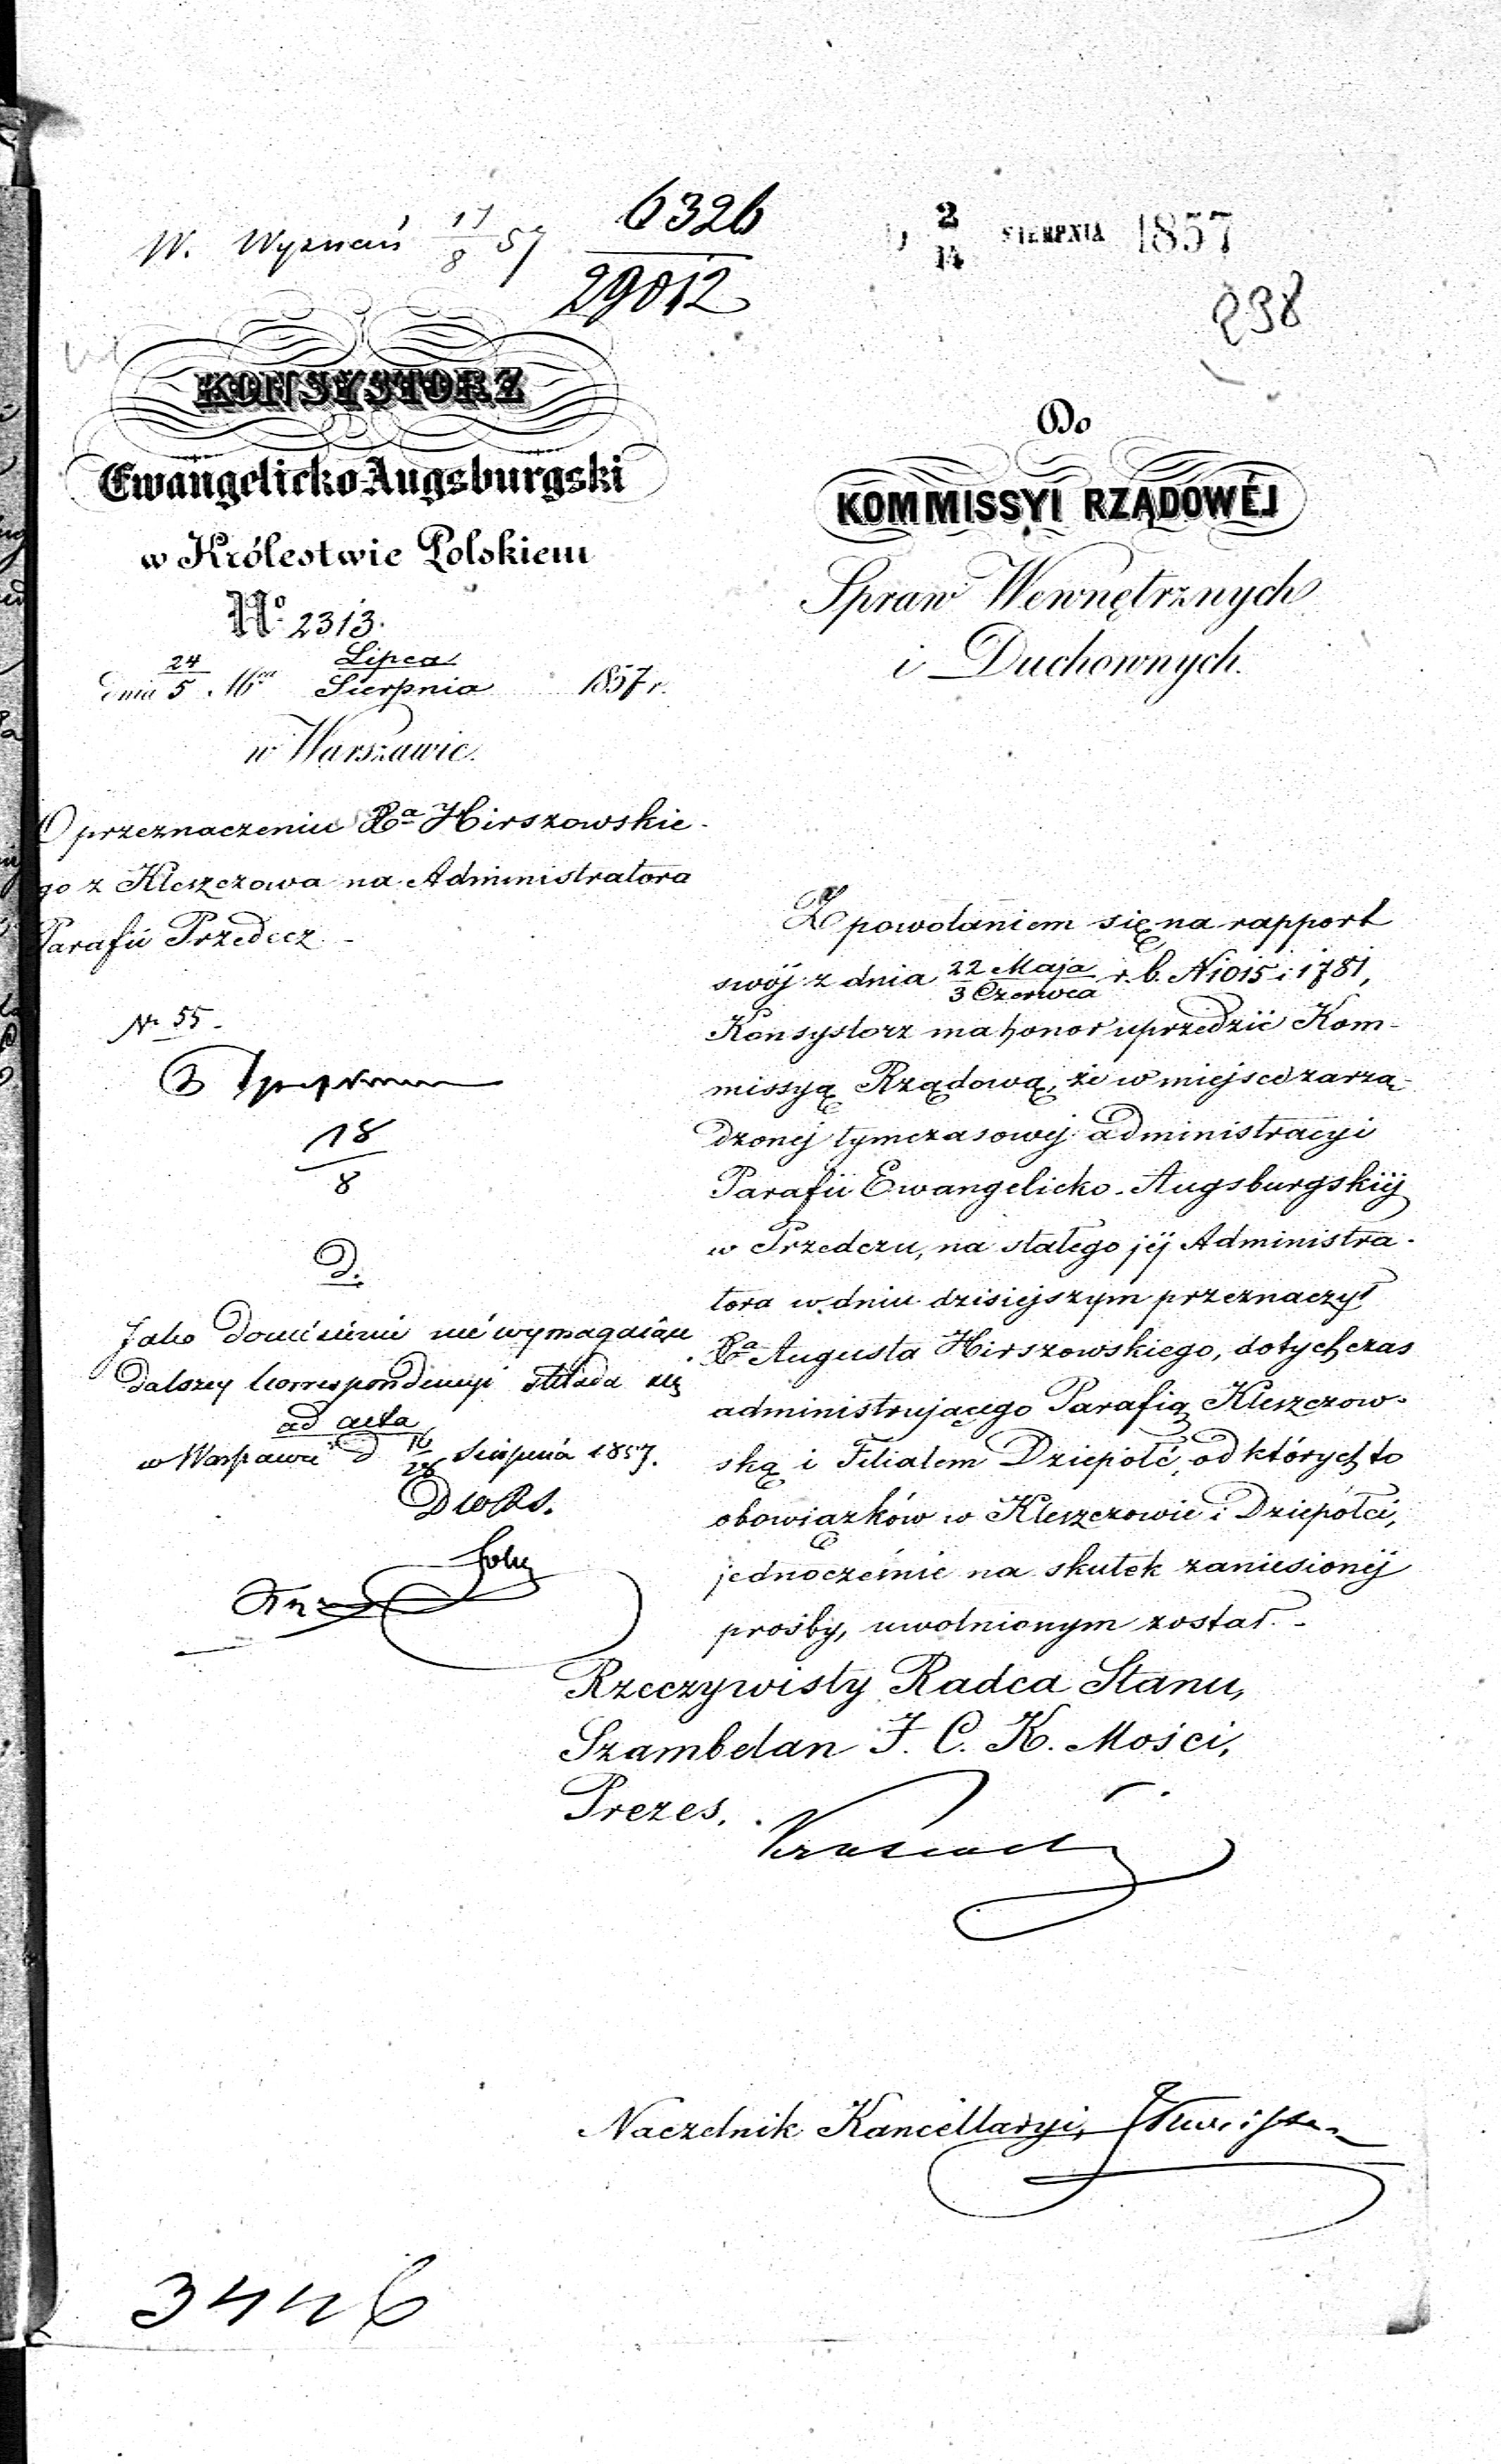 W. Wyznań 17/8 57
6326
29012
2/14 SIERPNIA 1857
238
KONSYSTORZ
Ewangelicko-Augsburgski
w Królestwie Polskiem
No 2313.
dnia 24/5 Mca Lipca/Sierpnia 1857 r.
w Warszawie.
O przeznaczeniu Xa Hirszowskie-
go z Kleszczowa na Administratora
Parafii Przedecz
Nr 55.
18
8
D.
Jako doniesienie nie wymagające
dalszey korrespondencyi składa się
ad acta
w Warszawie d 16/28 Sierpnia 1857.
Do
KOMMISSYI RZĄDOWÉJ
Spraw Wewnętrznych
i Duchownych.
Z powołaniem się na rapport
swój z dnia 22 Maja/3 Czerwca r. b. N 1015 i 1781,
Konsystorz ma honor uprzedzić Kom-
missyą Rządową, że w miejsce zarzą-
dzonej tymczasowej administracyi
Parafii Ewangelicko-Augsburgskiéj
w Przedczu, na stałego jéj Administra-
tora w dniu dzisiejszym przeznaczył
Xa Augusta Hirszowskiego, dotychczas
administrującego Parafią Kleszczow-
ską i Filialem Dziepołć, od których to
obowiązków w Kleszczowie i Dziepółci,
jednocześnie na skutek zaniesionéj
prośby, uwolnionym został.-
Rzeczywisty Radca Stanu,
Szambelan J. C. K. Mości,
Prezes.
Naczelnik Kancellaryi,
3446